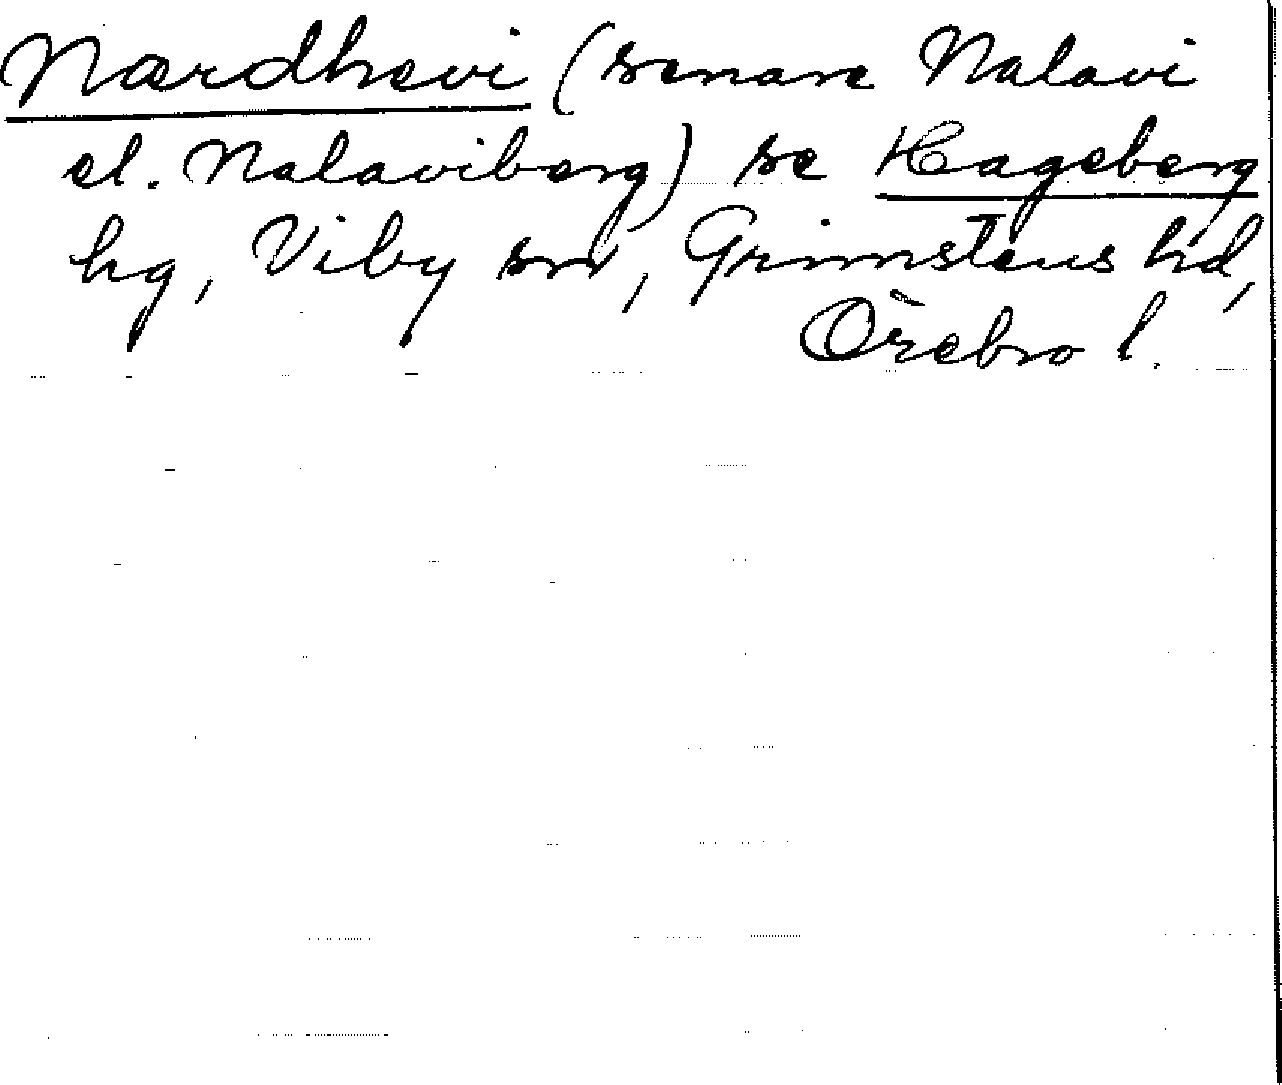 Nærdhævi (senare Nalavi
el. Nalaviberg) se Hageberg
hg, Viby sn, Grimstens hd,
Örebro l.